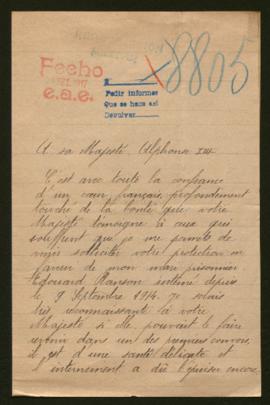 8805
Fecho
e.a.e.
Pedir informes
Que se haga así
Devolver
A sa Majesté Alphonse XIII
C'est avec toute la confiance
d'un cœur français, profondement
touché de la bonté que votre
Majesté témoigne à ceux qui
souffrent que je me permets de
venir solliciter votre protection en
faveur de mon mari prisonnier
Edouard Ranson interné depuis
le 9 Septembre 1914. Je serais
très reconnaissante à votre
Majesté si elle pouvait le faire
revenir dans un des premiers convois,
il est d'une santé délicate et
l'internement a dû l'épuiser encore.